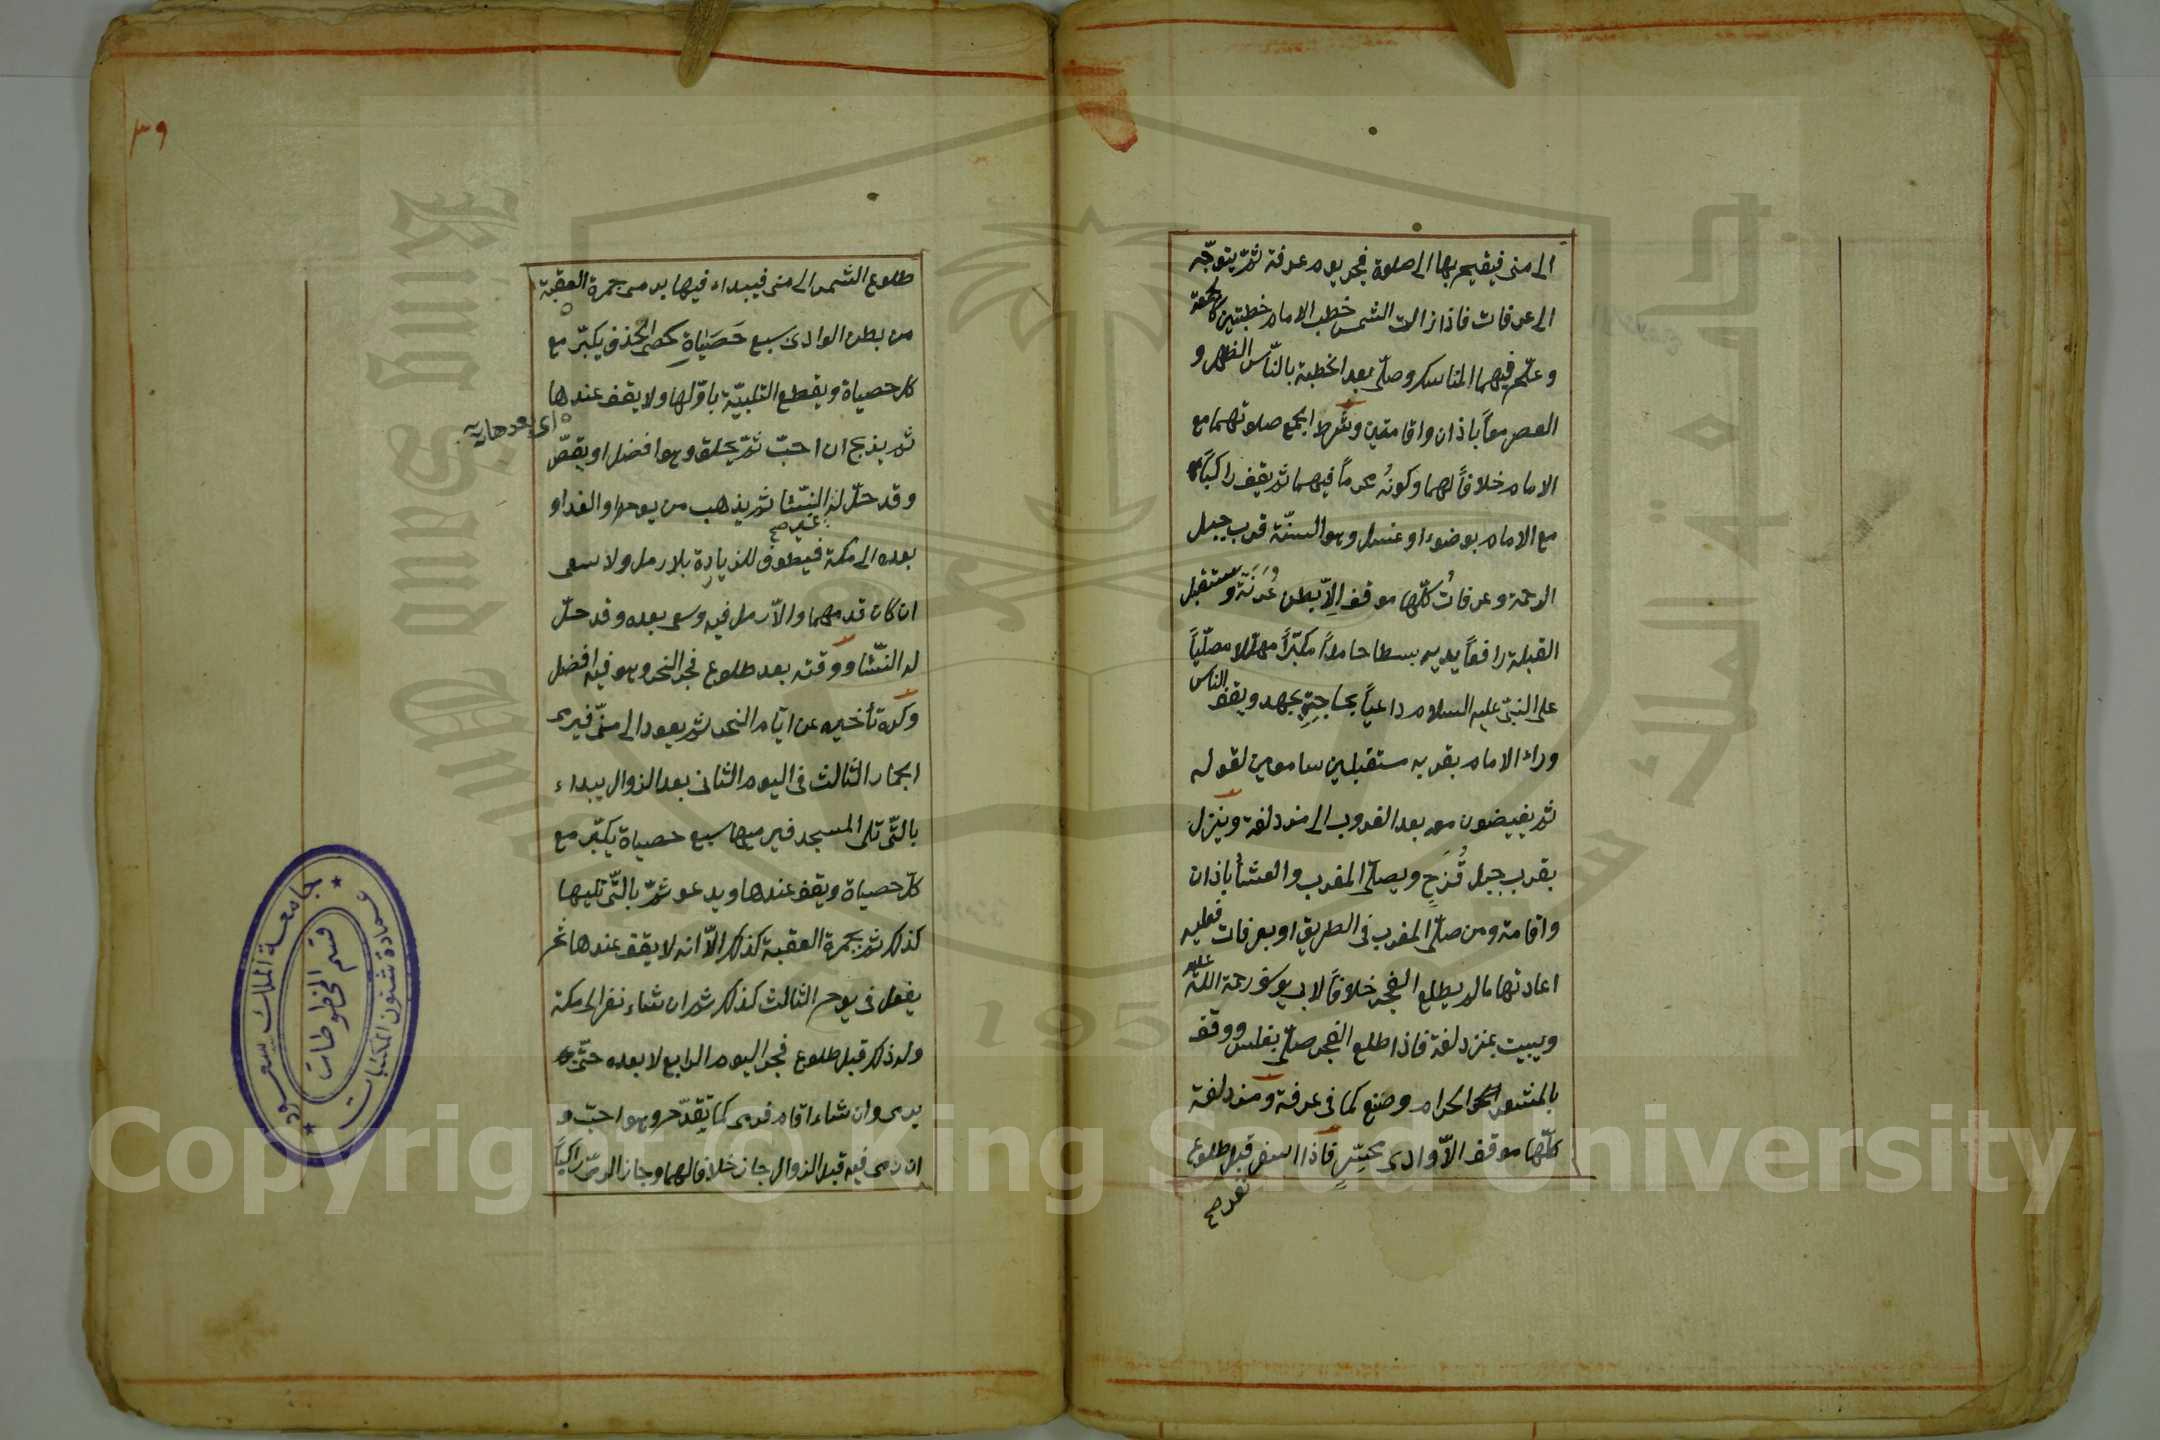 الى منى فيقيم بها الى صلوة فجر يوم عرفة ثمّ يتوجّه
الى عرفات فاذا زالت الشمس خطب الامام خطبتين كالجمعة
وعلّم فيهما المناسك وصلّى بعد الخطبة بالنّاس الظهر و
العصر معاً باذان واقامتين وشرط الجمع صلوتهما مع
الامام خلافاً لهما وكونُه محرماً فيهما ثم يقف راكباً
مع الامام بوضوء او غسل وهو السنّة قرب جبل
الرحمة وعرفاتُ كلّها موقف اِلاّ بطن عُرَنَةَ ومستقبل
القبلة رافعاً يديه بسطا حامداً مكبّراً مهلّلا مصلّياً
على النبىّ عليه السلام داعياً بحاجتِهِ بجهد ويقف الناس
وراء الامام بقربه مستقبلين سامعين لقوله
ثم يفيضون معه بعد الغروب الى مزدلفة وينزل
بقرب جبل قُزَحٍ ويصلّى المغرب والعشاُ باذان
واقامة ومن صلّى المغرب فى الطريق او بعرفات فعليه
اعادتها مالم يطلع الفجر خلافاً لابى يوسف رحمة اللّه عليه
ويبيت بمزدلفة فاذا طلع الفجر صلّى بغلس ووقف
بالمشعر الحرام وصنع كما فى عرفة ومزدلفة
كلّها موقف الاّ وادى محسّرٍ فاذا اسفر قبل طلوع
نفر صح
٣٩
طلوع الشمس الى منى فيبداء فيها يرمى جمرة العقبة
من بطن الوادى سبع حَصَيَاةٍ كحصى الخذف يكبّر مع
كل حصياة ويقطع التلبيّة باوّلها ولا يقف عندها
ثم يذبح ان احبّ ثمّ يحلق وهو افضل او يقصّر
وقد حلّ له النّسا ثم يذهب من يومه او الغد او
غير صح
بعده الى مكة فيطوف للزيارة بلا رمل ولا سعى
ان كان قدمهما والاّ رمل فيه وسعى بعده وقد حلّ
له النّسا ووقته بعد طلوع فجر النحر وهو فيه افضل
وكره تأخيره عن ايّام النحر ثم يعود الى منىّ فيرمى
الجمار الثالث فى اليوم الثانى بعد الزوال يبداء
بالتّى تلى المسجد فيرميها سبع حصياة يكبّر مع
كلّ حصياة ويقف عندها ويدعو ثمّ بالتّى تليها
كذلك ثم بجمرة العقبة كذلك الاّ انه لا يقف عندها ثم
يفعل فى يوم الثالث كذلك ثم ان شاء نفر الى مكة
وله ذلك قبل طلوع فجر اليوم الرابع لا بعده حتّى
يرمى وان شاء اقام فرمى كما تقدّم وهو احبّ و
ان رمى فيه قبل الزوال جاز خلافا لهما وجاز الرمىّ راكباً
جامعة الملك سعود
عمادة شئون المكتبات
قسم المخطوطات
King Saud University
1957
Copyright © King Saud University